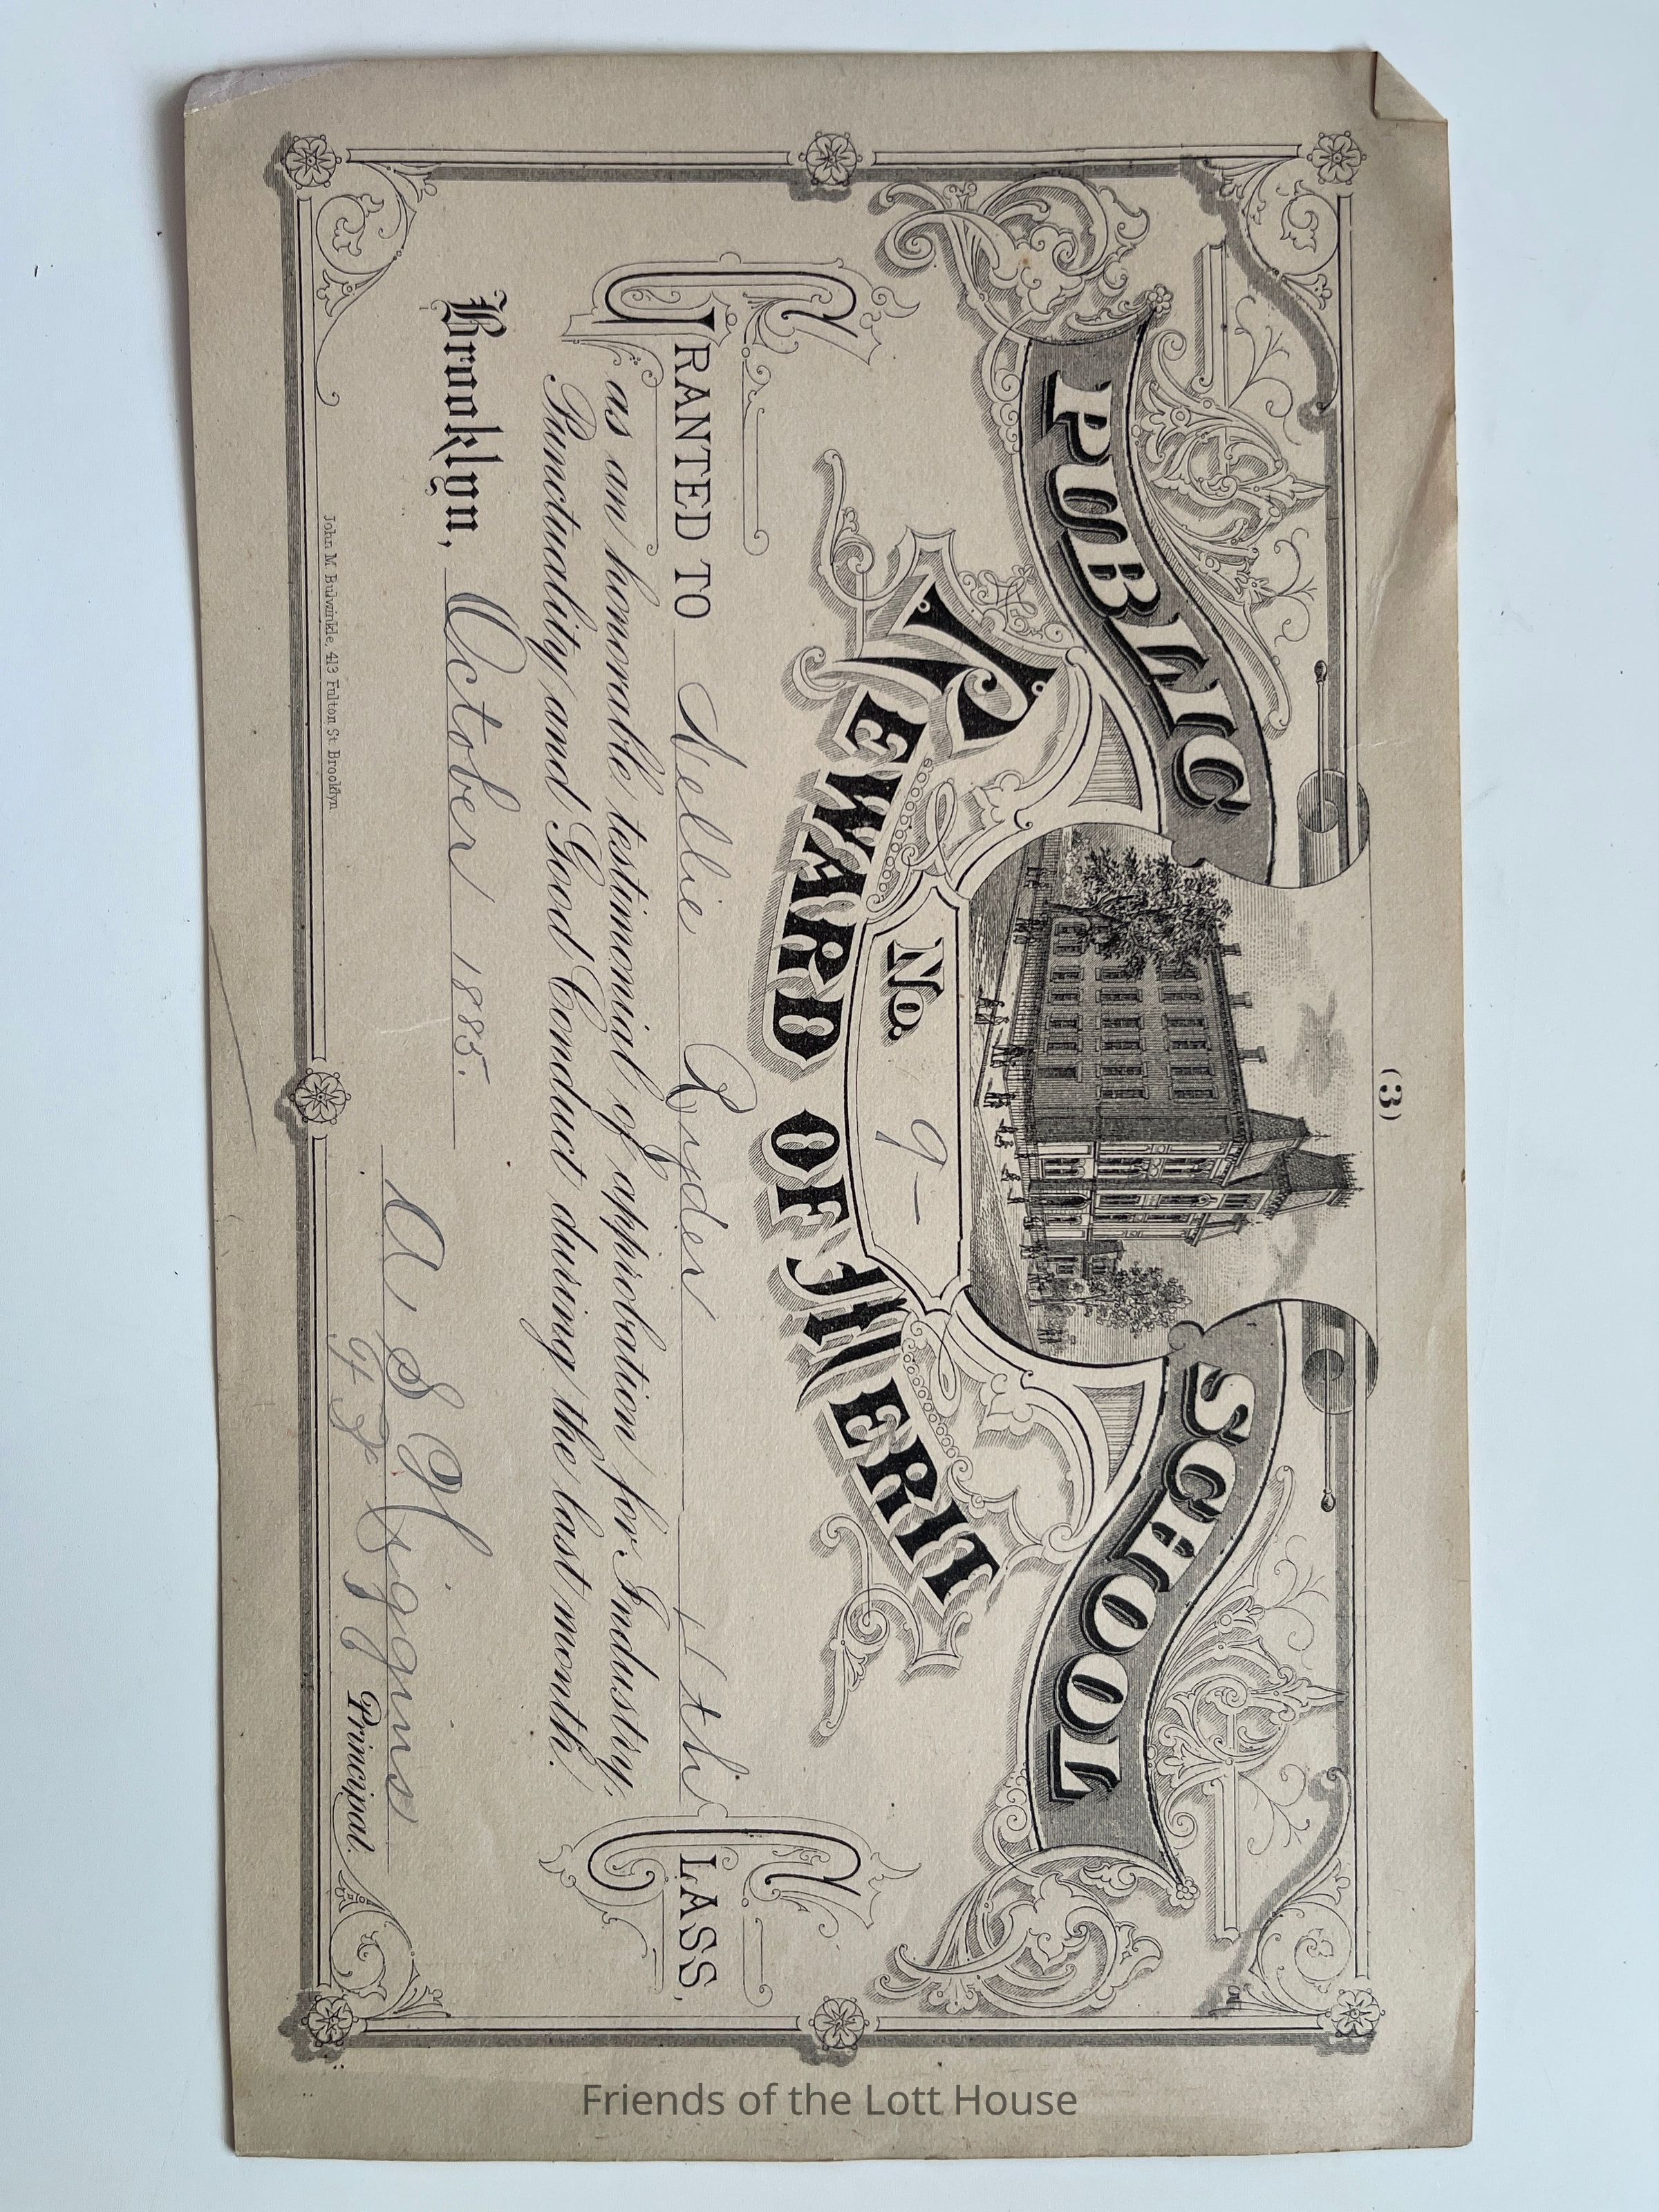 (3)
PUBLIC SCHOOL
No. 9-
REWARD OF MERIT
GRANTED TO Nellie Ryder 4th CLASS,
as an honorable testimonial of approbation for Industry,
Punctuality and Good Conduct during the last month.
Brooklyn, October 1885.
A. S. Higgins
Principal.
John M. Bulwinkle, 413 Fulton St Brooklyn
Friends of the Lott House